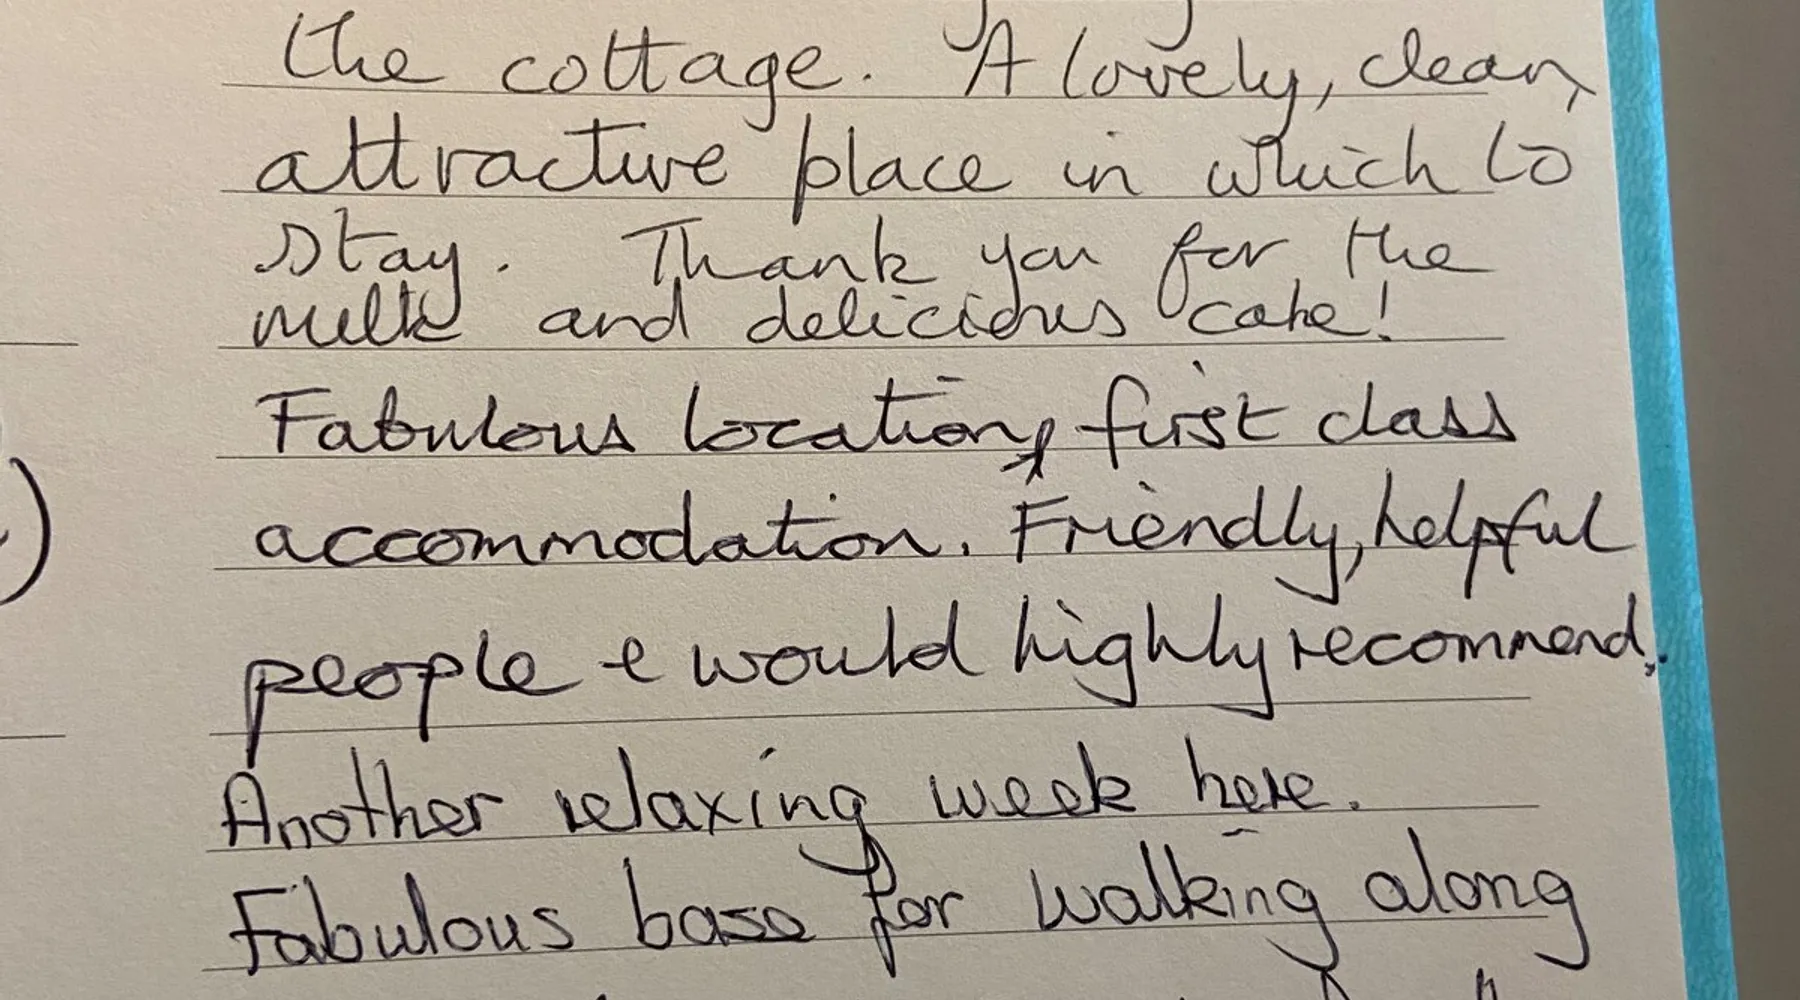 the cottage. A lovely, clean,
attractive place in which to
stay. Thank you for the
milk and delicious cake!
Fabulous location, first class
accommodation. Friendly, helpful
people & would highly recommend.
Another relaxing week here.
Fabulous base for walking along